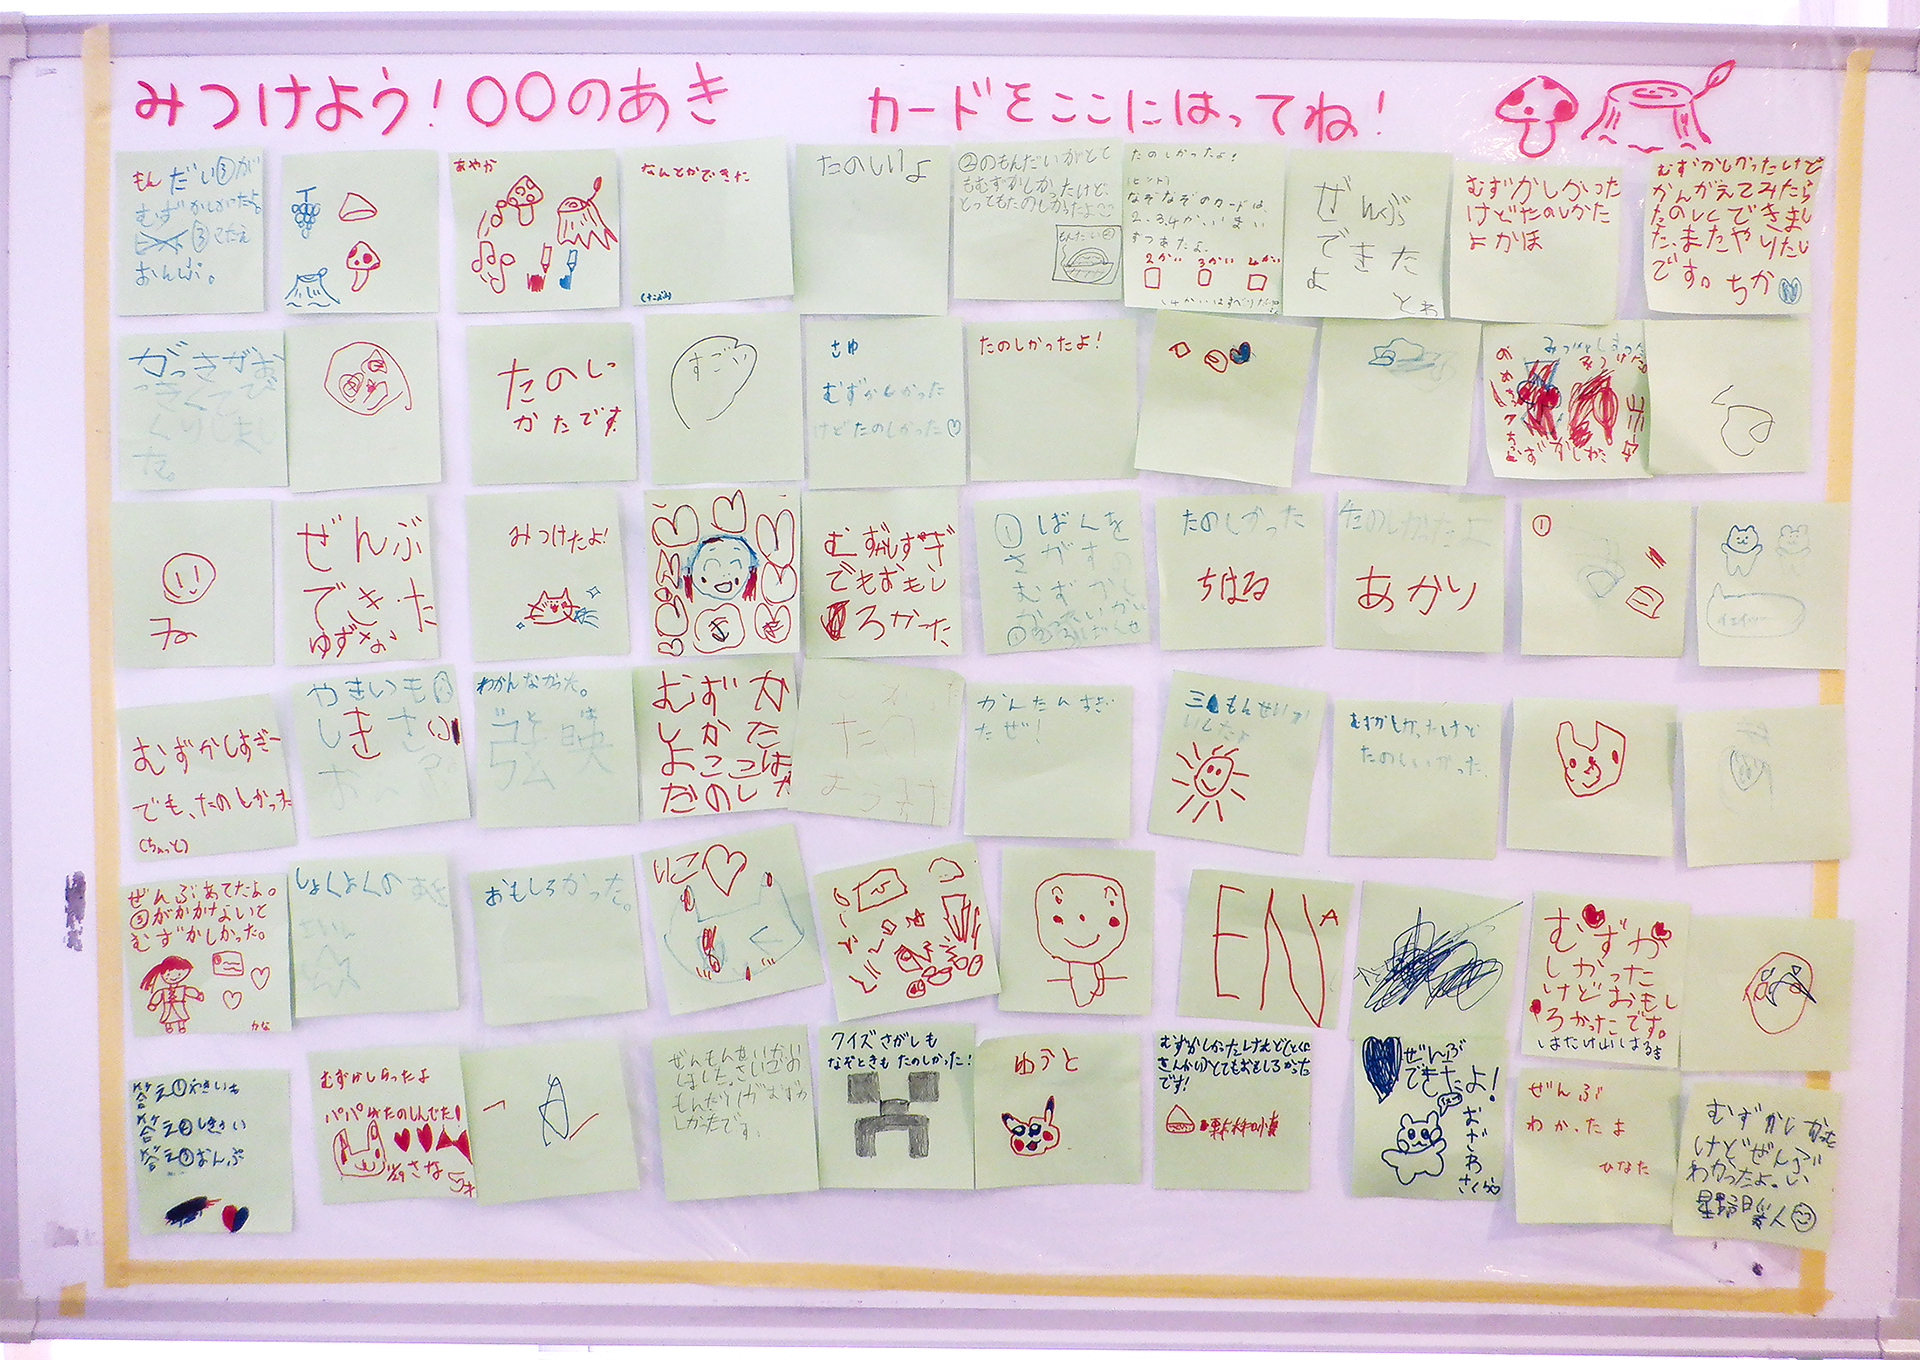 みつけよう！〇〇のあき
カードをここにはってね！
もんだい②が
むずかしかったよ。
③こたえ
おんぷ。
あやか
なんとかできた
たのしいよ
②のもんだいがとて
もむずかしかったけど、
とってもたのしかったよ
もんだい②
たのしかったよ！
（ヒント）
なぞなぞのカードは、
2、3、4かいいまい
ずつあたよ。
2かい 3かい 4かい
ぜんぶ
できた
よ
とわ
むずかしかった
けどたのしかた
よかほ
むずかしかったけど
かんがえてみたら
たのしくできまし
た。またやりたい
です。ちか
がっきがお
っきくてび
っくりしまし
た。
たのしい
かたです
すごい
さゆ
むずかしかった
けどたのしかった♡
たのしかったよ！
ぜんぶ
できた
ゆずな
みつけたよ！
むずかしすぎ
でもおもし
ろかった
①ばんを
さがすの
むずかし
たのしかった
ちはる
たのしかったよ
あかり
①
イェイ
むずかしすぎー
でも、たのしかった
（ちょっと）
やきいも
しきさい
おんぷ
わかんなかった。
むずか
しかた
よここは
だのしか
かんたんすぎ
たぜ！
三もんせいか
いしたよ
むずかしかったけど
たのしいかった。
ぜんぶあてたよ。
③がかかないと
むずかしかった。
かな
しょくよくのあき
おもしろかった。
りこ♡
ENA
むずか
しかった
けどおもし
ろかったです。
しはたけ山しはるき
答え①やきいも
答え②しきさい
答え③おんぷ
むずかしらったよ
パパがたのしんでた！
11/29さな
ぜんもんせいかいお
しました。さいごの
もんだいがむずか
しかったです。
クイズさがしも
なぞときもたのしかった！
ゆうと
むずかしかったけれどとくに
きんかいがとてもおもしろかった
です！
ぜんぶ
できたよ！
おざわ
さくら
ぜんぶ
わかったよ
ひなた
むずかしかった
けどぜんぶ
わかったよ。い